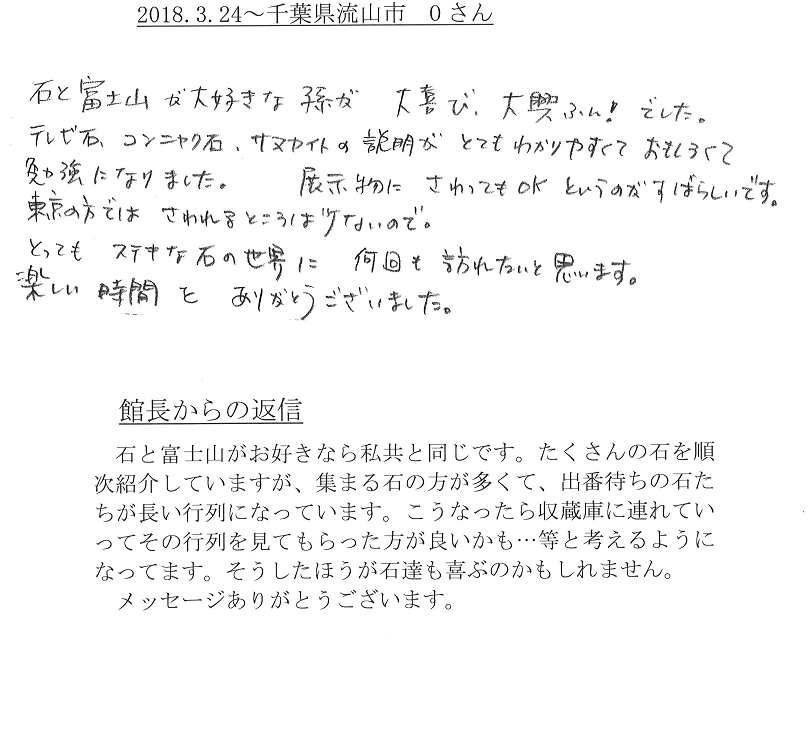 2018.3.24～千葉県流山市　Oさん
石と富士山が大好きな孫が　大喜び、大興ふん！でした。
テレビ石、コンニャク石、サヌカイトの説明が とてもわかりやすくて おもしろくて
勉強になりました。　展示物に さわってもOK というのがすばらしいです。
東京の方では さわれるところは少ないので。
とっても ステキな石の世界に 何回も訪れたいと思います。
楽しい時間を ありがとうございました。
館長からの返信
石と富士山がお好きなら私共と同じです。たくさんの石を順
次紹介していますが、集まる石の方が多くて、出番待ちの石た
ちが長い行列になっています。こうなったら収蔵庫に連れてい
ってその行列を見てもらった方が良いかも…等と考えるように
なってます。そうしたほうが石達も喜ぶのかもしれません。
メッセージありがとうございます。